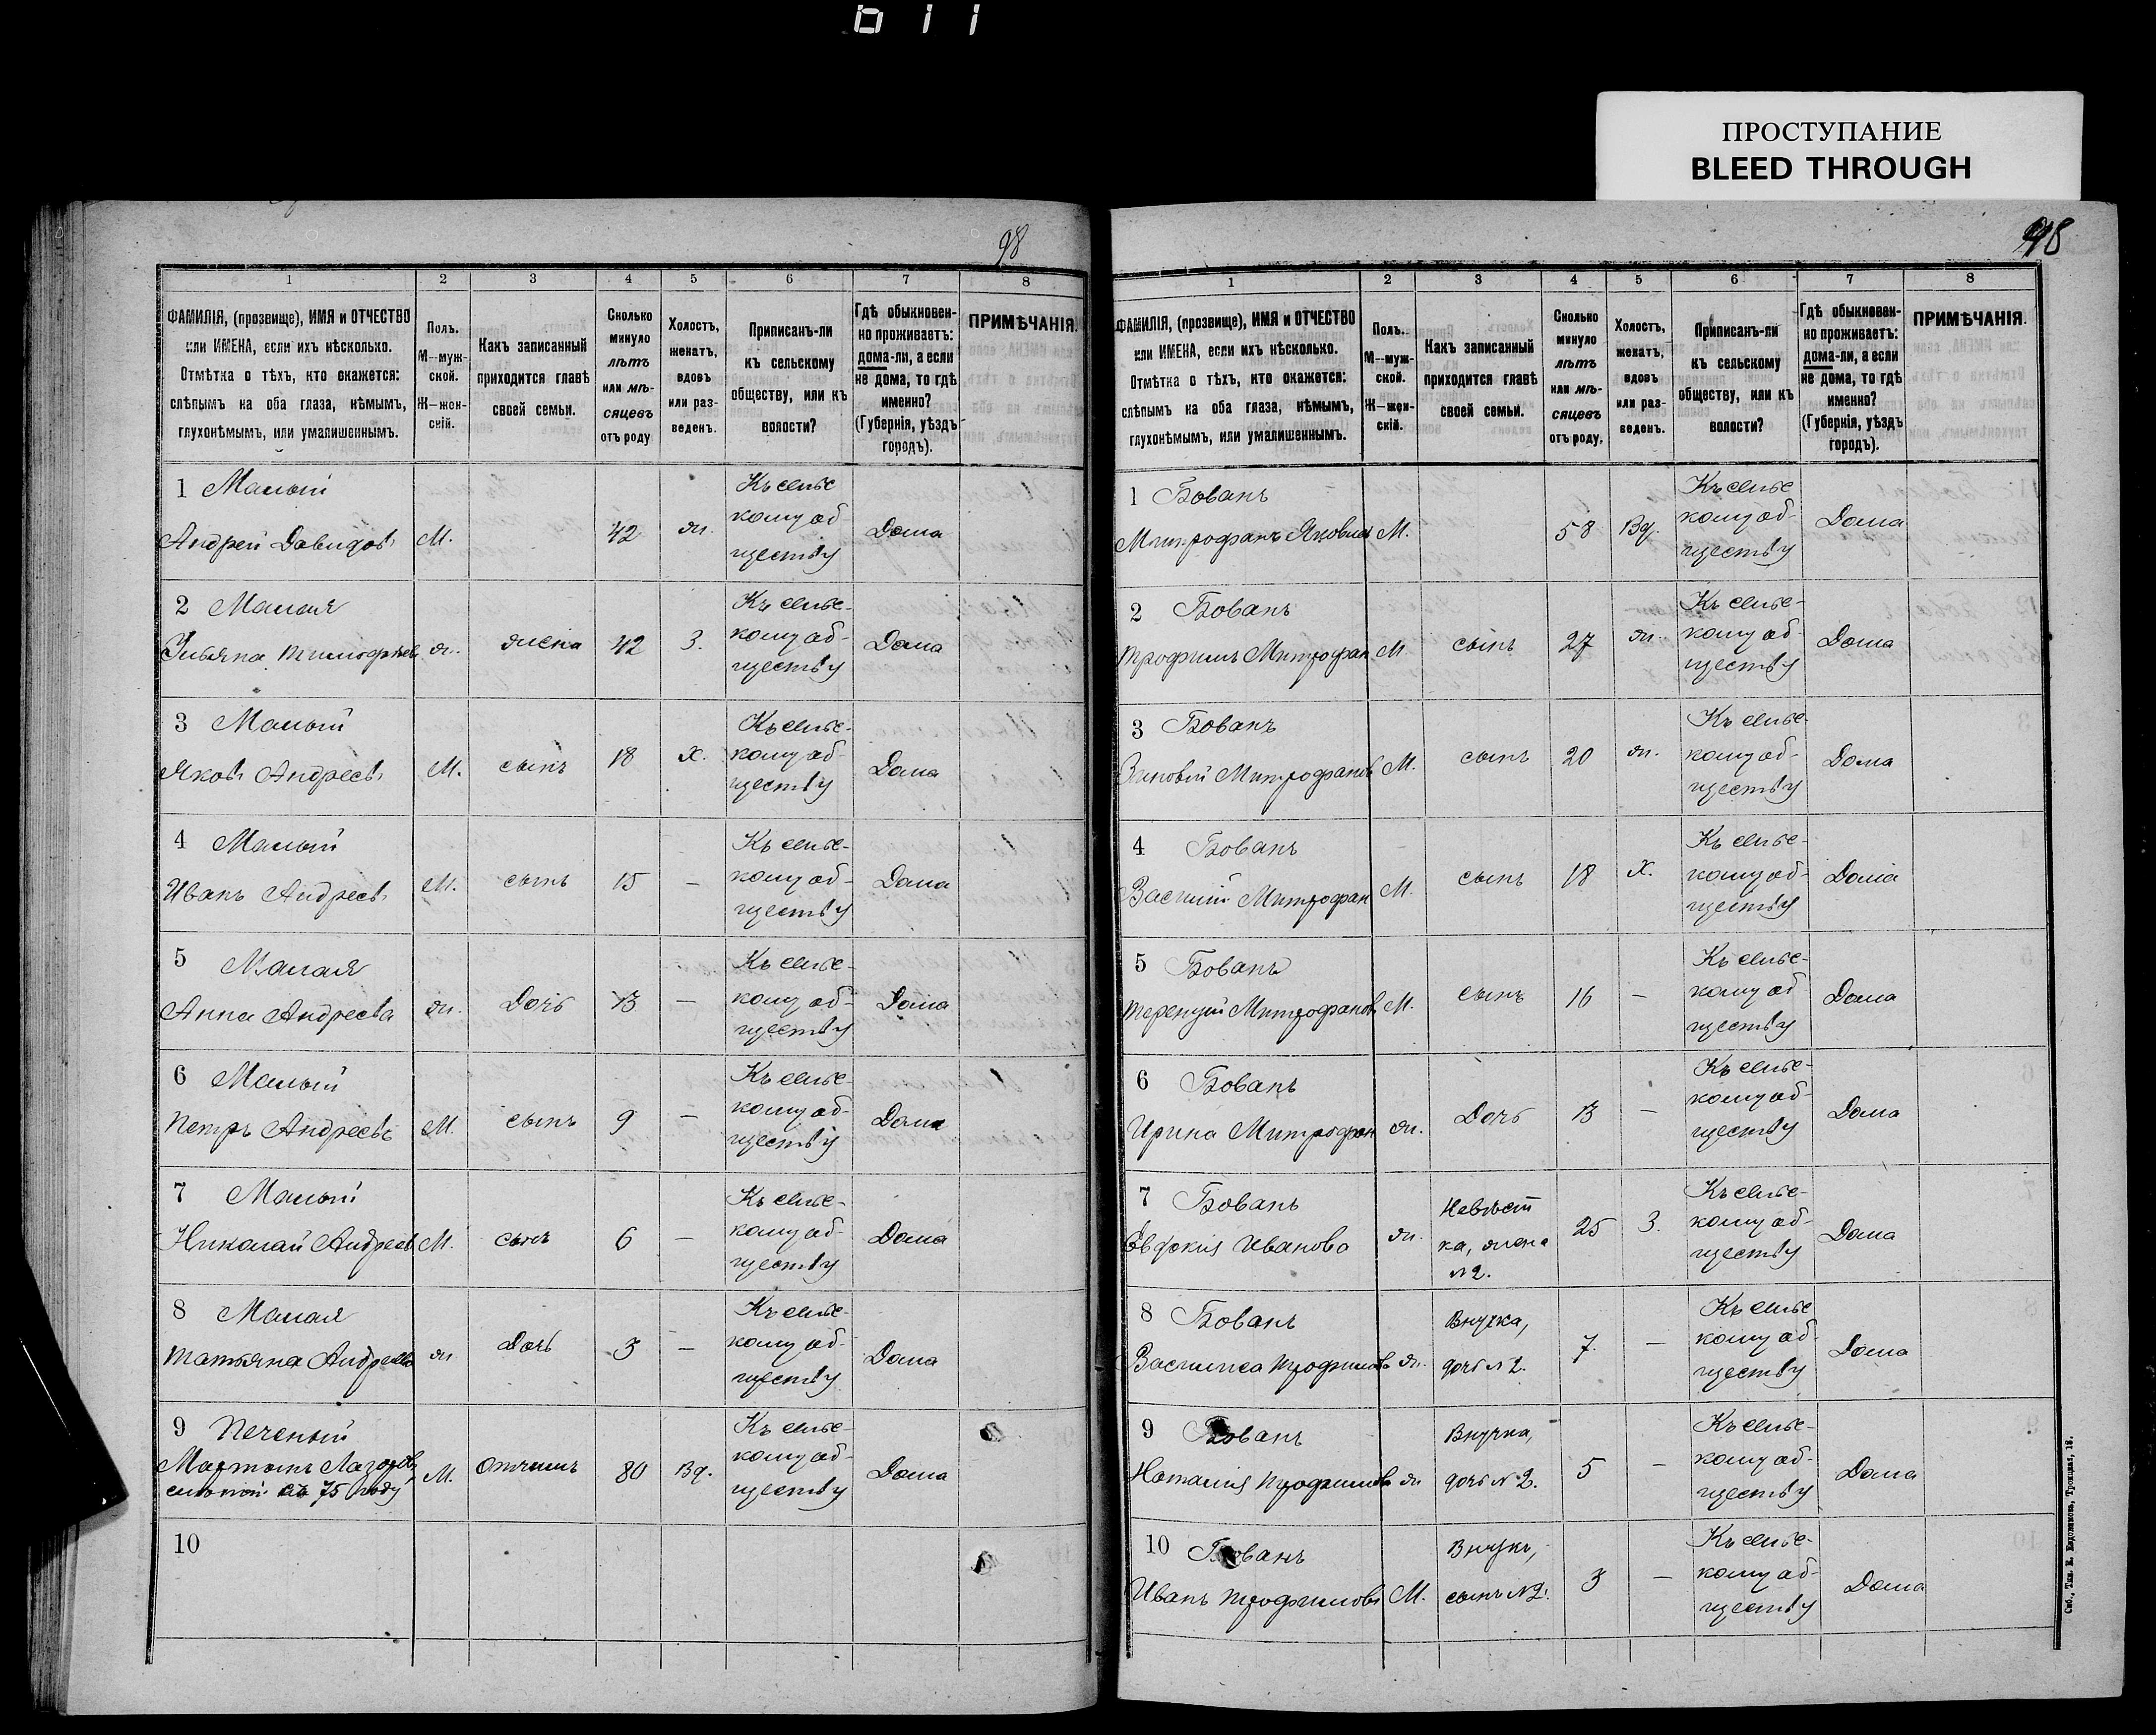 ПРОСТУПАНИЕ
BLEED THROUGH
98
1 2 3 4 5 6 7 8
ФАМИЛІЯ, (прозвище), ИМЯ и ОТЧЕСТВО или ИМЕНА, если ихъ нѣсколько. Отмѣтка о тѣхъ, кто окажется: слѣпымъ на оба глаза, нѣмымъ, глухонѣмымъ, или умалишеннымъ.
Полъ. М—мужской. Ж—женскій.
Какъ записанный приходится главѣ своей семьи.
Сколько минуло лѣтъ или мѣсяцевъ отъ роду
Холостъ, женатъ, вдовъ или разведенъ.
Приписанъ-ли къ сельскому обществу, или къ волости?
Гдѣ обыкновенно проживаетъ: дома-ли, а если не дома, то гдѣ именно? (Губернія, уѣздъ городъ).
ПРИМѢЧАНІЯ.
1 Малый
Андрей Давидовъ М. 42 ж. Къ сельскому обществу Дома
2 Малая
Ульяна Тимофѣев ж. жена 42 З. Къ сельскому обществу Дома
3 Малый
Яковъ Андреевъ М. сынъ 18 Х. Къ сельскому обществу Дома
4 Малый
Иванъ Андреевъ М. сынъ 15 — Къ сельскому обществу Дома
5 Малая
Анна Андреева ж. Дочь 13 — Къ сельскому обществу Дома
6 Малый
Петръ Андреевъ М. сынъ 9 — Къ сельскому обществу Дома
7 Малый
Николай Андреев М. сынъ 6 — Къ сельскому обществу Дома
8 Малая
Татьяна Андреева ж. Дочь 3 — Къ сельскому обществу Дома
9 Печеный
Мартынъ Лазоров, слепой съ 75 году М. Отчимъ 80 Вд. Къ сельскому обществу Дома
10
98
1 2 3 4 5 6 7 8
ФАМИЛІЯ, (прозвище), ИМЯ и ОТЧЕСТВО или ИМЕНА, если ихъ нѣсколько. Отмѣтка о тѣхъ, кто окажется: слѣпымъ на оба глаза, нѣмымъ, глухонѣмымъ, или умалишеннымъ.
Полъ. М—мужской. Ж—женскій.
Какъ записанный приходится главѣ своей семьи.
Сколько минуло лѣтъ или мѣсяцевъ отъ роду.
Холостъ, женатъ, вдовъ или разведенъ.
Приписанъ-ли къ сельскому обществу, или къ волости?
Гдѣ обыкновенно проживаетъ: дома-ли, а если не дома, то гдѣ именно? (Губернія, уѣздъ городъ).
ПРИМѢЧАНІЯ.
1 Бованъ
Митрофанъ Яковлев М. 58 Вд. Къ сельскому обществу Дома
2 Бованъ
Трофимъ Митрофан М. сынъ 27 ж. Къ сельскому обществу Дома
3 Бованъ
Зиновій Митрофановъ М. сынъ 20 ж. Къ сельскому обществу Дома
4 Бованъ
Василій Митрофан М. сынъ 18 Х. Къ сельскому обществу Дома
5 Бованъ
Терентій Митрофановъ М. сынъ 16 — Къ сельскому обществу Дома
6 Бованъ
Ирина Митрофан ж. Дочь 13 — Къ сельскому обществу Дома
7 Бованъ
Евдокія Иванова ж. Невѣстка, жена №2. 25 З. Къ сельскому обществу Дома
8 Бованъ
Василиса Трофимова ж. Внучка, дочь №2. 7. — Къ сельскому обществу Дома
9 Бованъ
Наталія Трофимова ж Внучка, дочь №2. 5 — Къ сельскому обществу Дома
10 Бованъ
Иванъ Трофимовъ М. Внукъ, сынъ №2. 3 — Къ сельскому обществу Дома
Спб., Тип. Е. Евдокимова, Троицкая, 18.